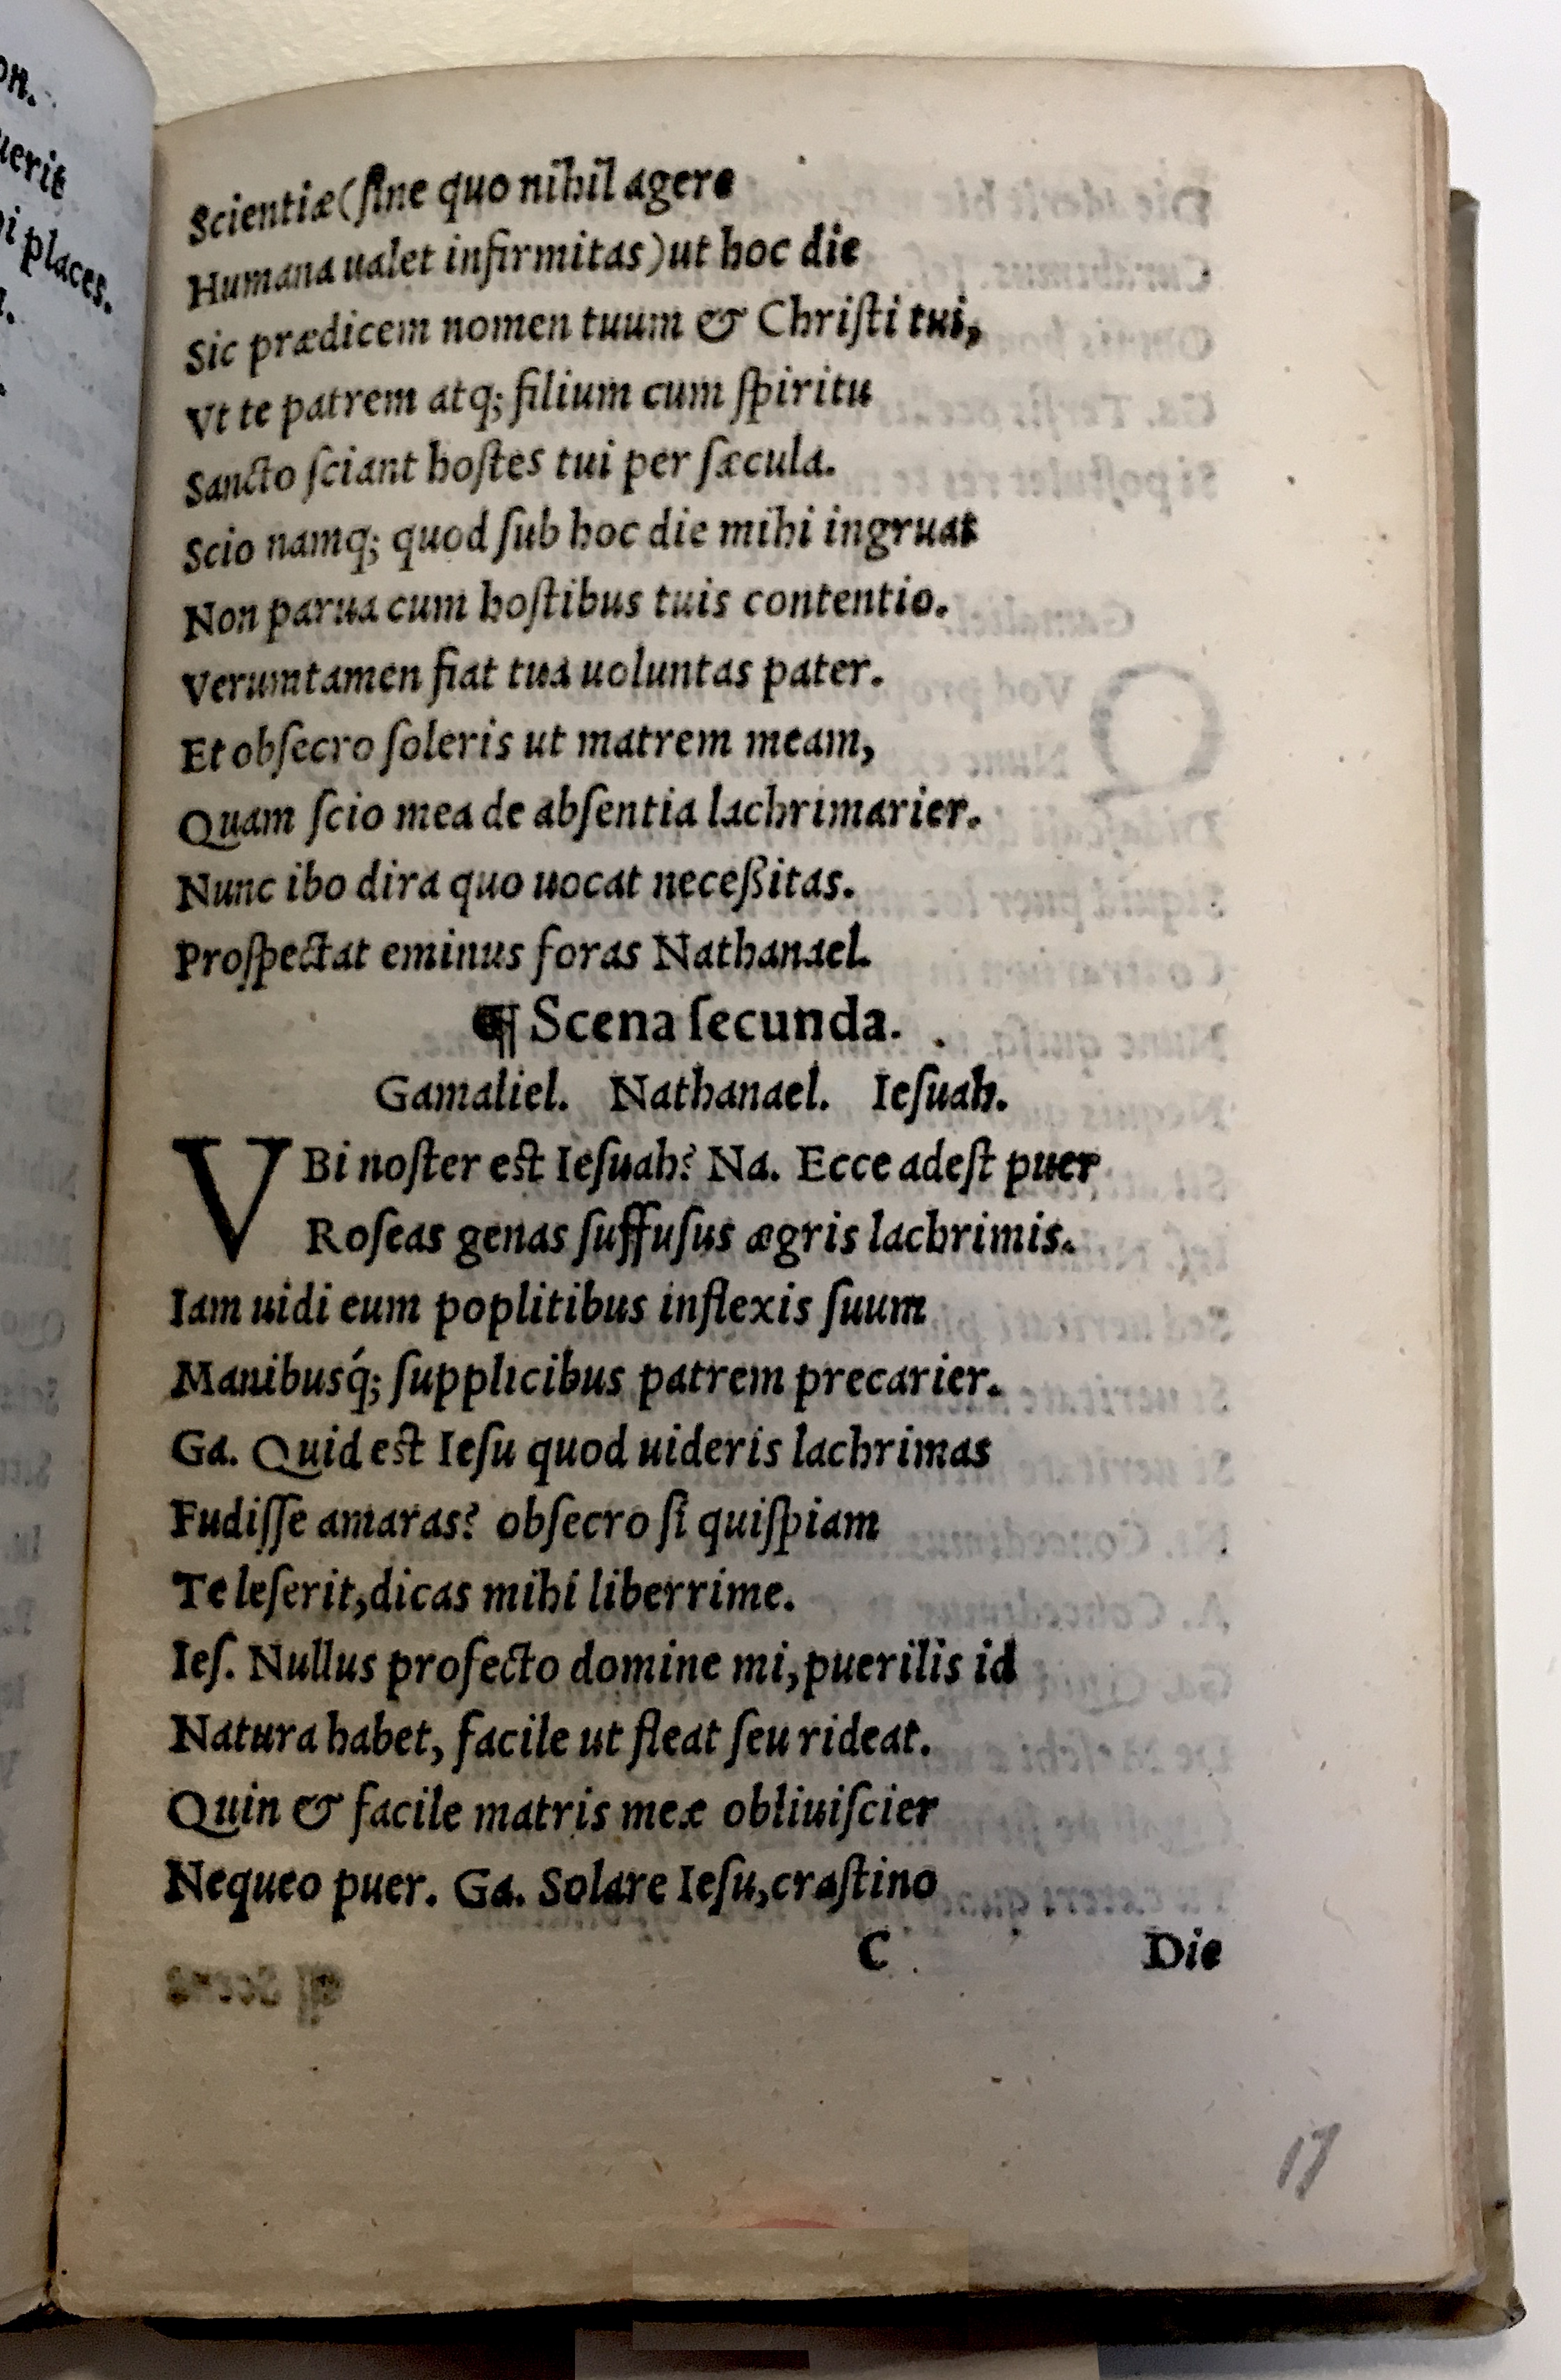 on.
uerit
i places.
Scientiæ(ſine quo nihil agere
Humana ualet infirmitas)ut hoc die
Sic prædicem nomen tuum & Chriſti tui,
Vt te patrem atq; filium cum ſpiritu
Sancto ſciant hoſtes tui per ſæcula.
Scio namq; quod ſub hoc die mihi ingruat
Non parua cum hoſtibus tuis contentio.
Veruntamen fiat tua uoluntas pater.
Et obſecro ſoleris ut matrem meam,
Quam ſcio mea de abſentia lachrimarier.
Nunc ibo dira quo uocat neceßitas.
Proſpectat eminus foras Nathanael.
¶ Scena ſecunda.
Gamaliel. Nathanael. Ieſuah.
VBi noſter est Ieſuah? Na. Ecce adeſt puer
Roſeas genas ſuffuſus ægris lachrimis.
Iam uidi eum poplitibus inflexis ſuum
Manibusq́; ſupplicibus patrem precarier.
Ga. Quid est Ieſu quod uideris lachrimas
Fudiſſe amaras? obſecro ſi quiſpiam
Te leſerit,dicas mihi liberrime.
Ieſ. Nullus profecto domine mi,puerilis id
Natura habet, facile ut fleat ſeu rideat.
Quin & facile matris meæ obliuiſcier
Nequeo puer. Ga. Solare Ieſu,craſtino
C Die
17